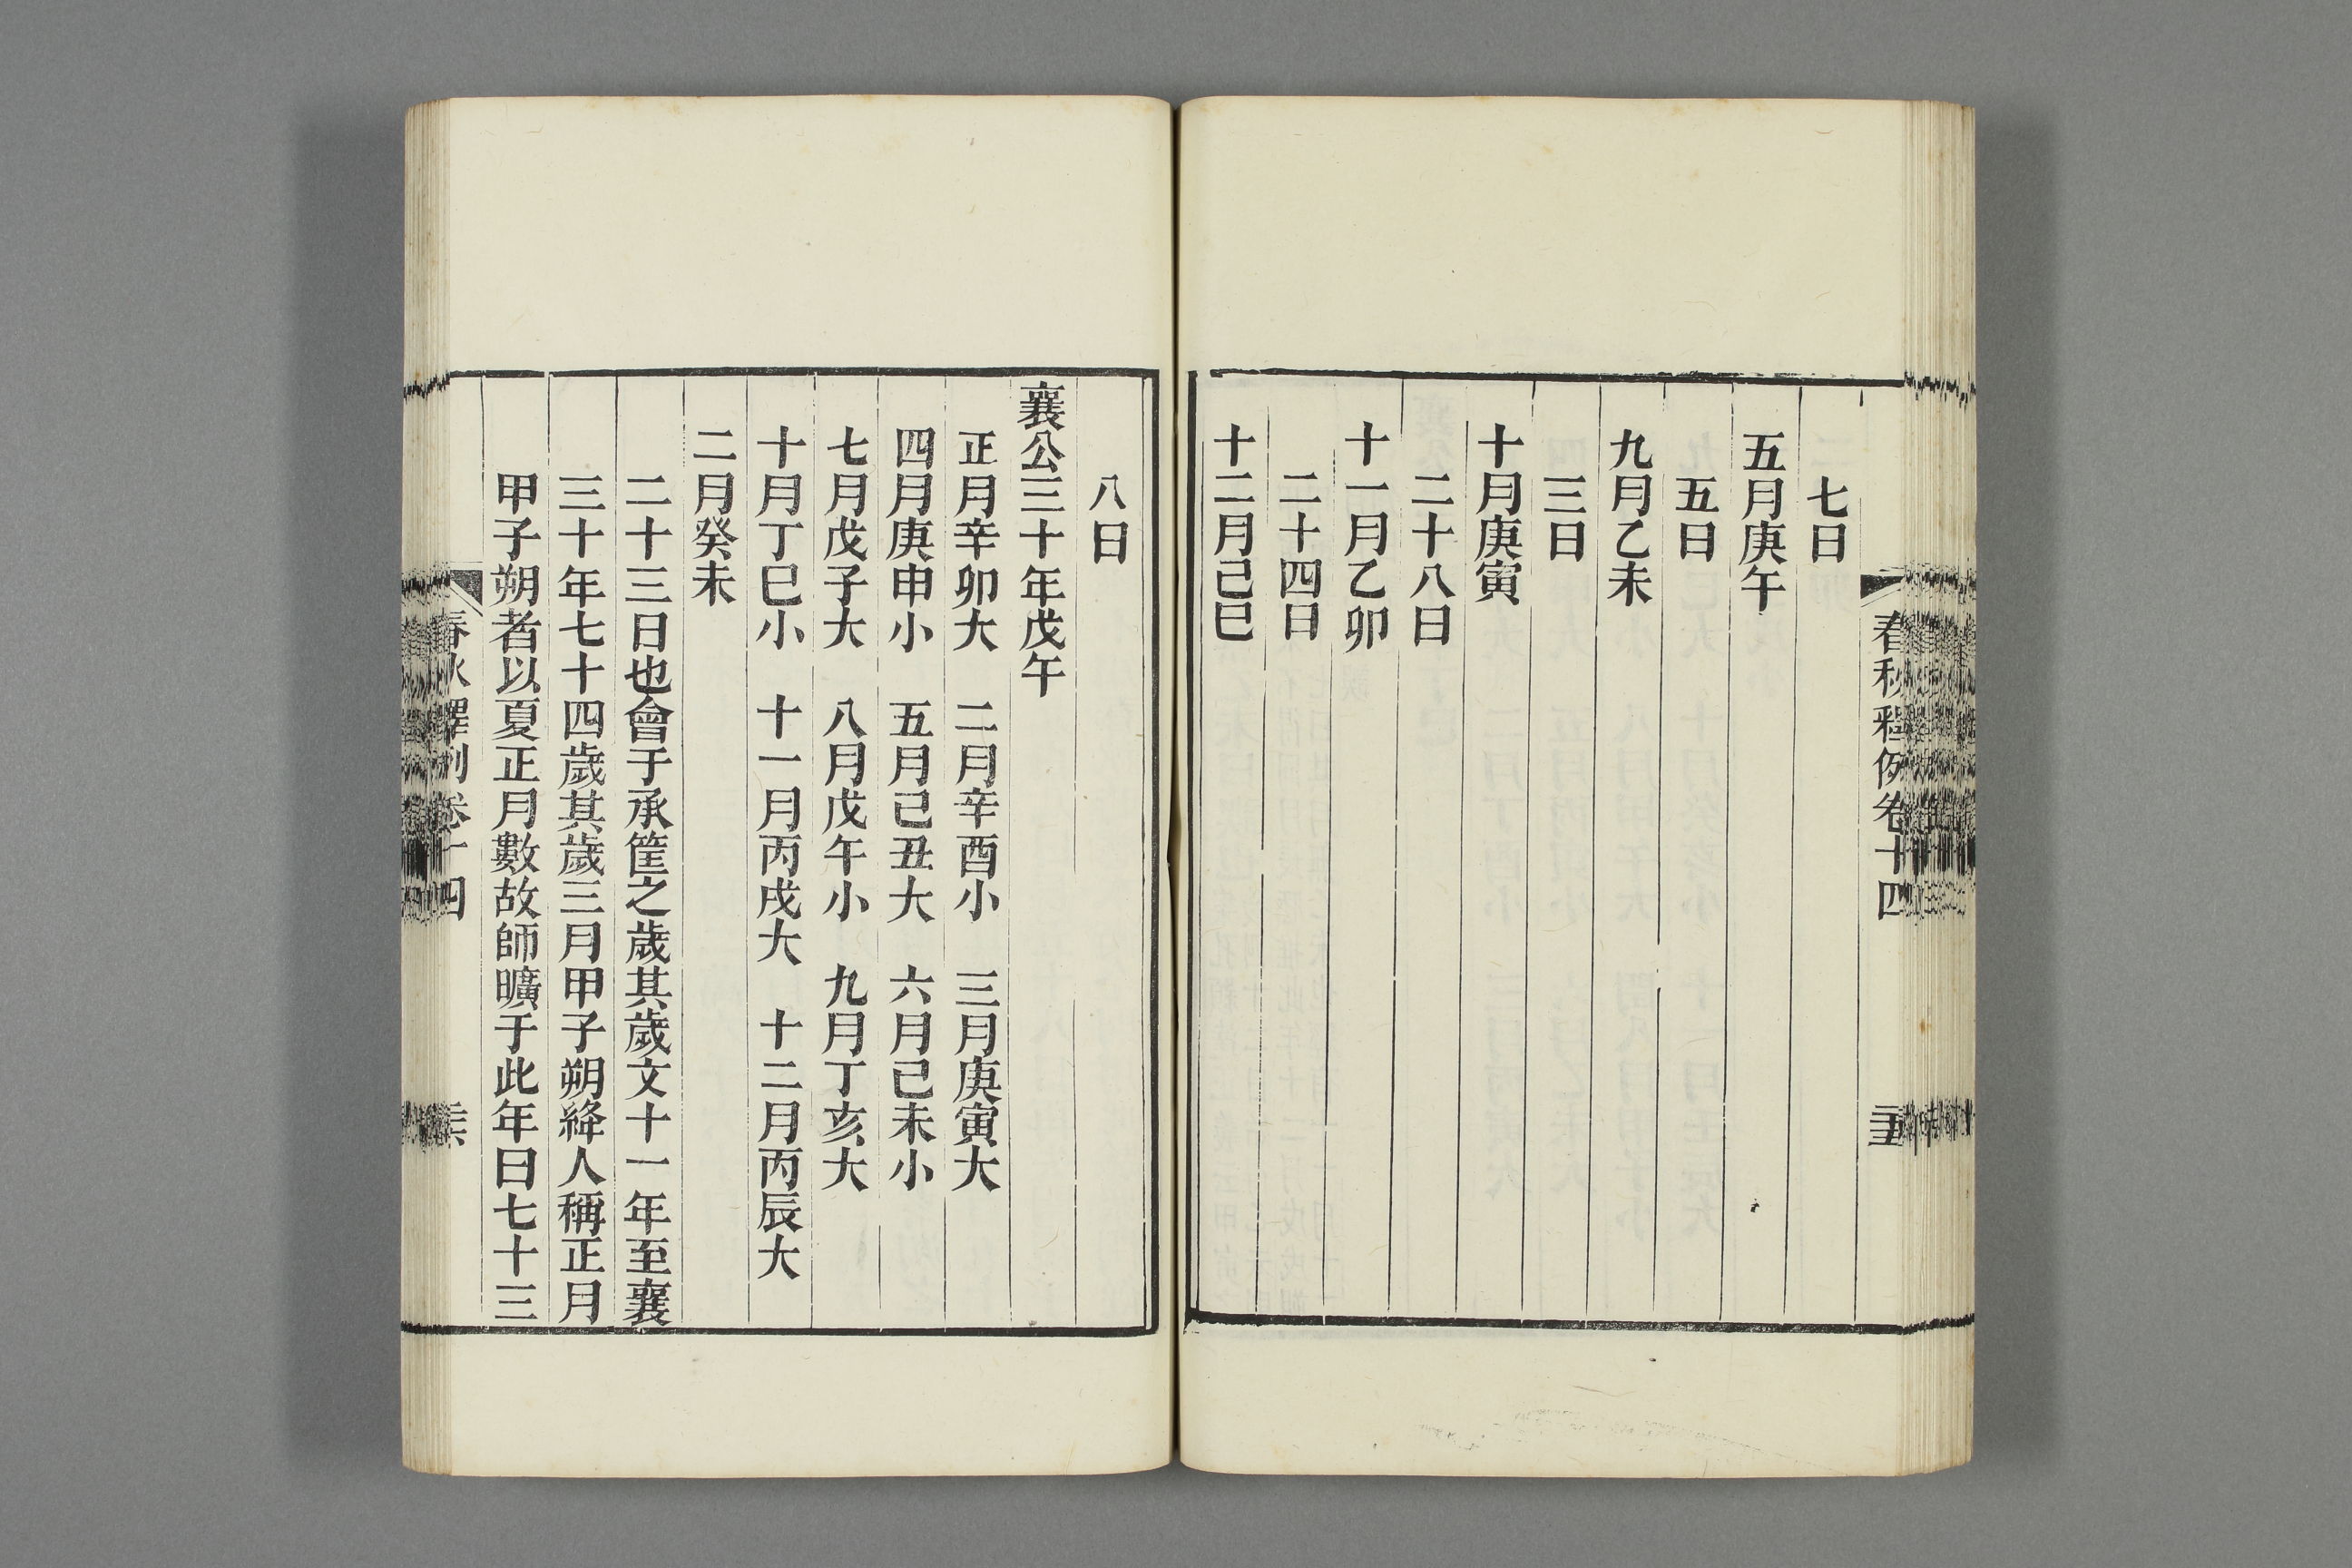 春秋釋例卷十四
七日
五月庚午
五日
九月乙未
三日
十月庚寅
二十八日
十一月乙卯
二十四日
十二月己巳
八日
襄公三十年戊午
正月辛卯大　二月辛酉小　三月庚寅大
四月庚申小　五月己丑大　六月己未小
七月戊子大　八月戊午小　九月丁亥大
十月丁巳小　十一月丙戌大　十二月丙辰大
二月癸未
二十三日也會于承筐之歲其歲文十一年至襄
三十年七十四歲其歲三月甲子朔絳人稱正月
甲子朔者以夏正月數故師曠于此年曰七十三
春秋釋例卷十四